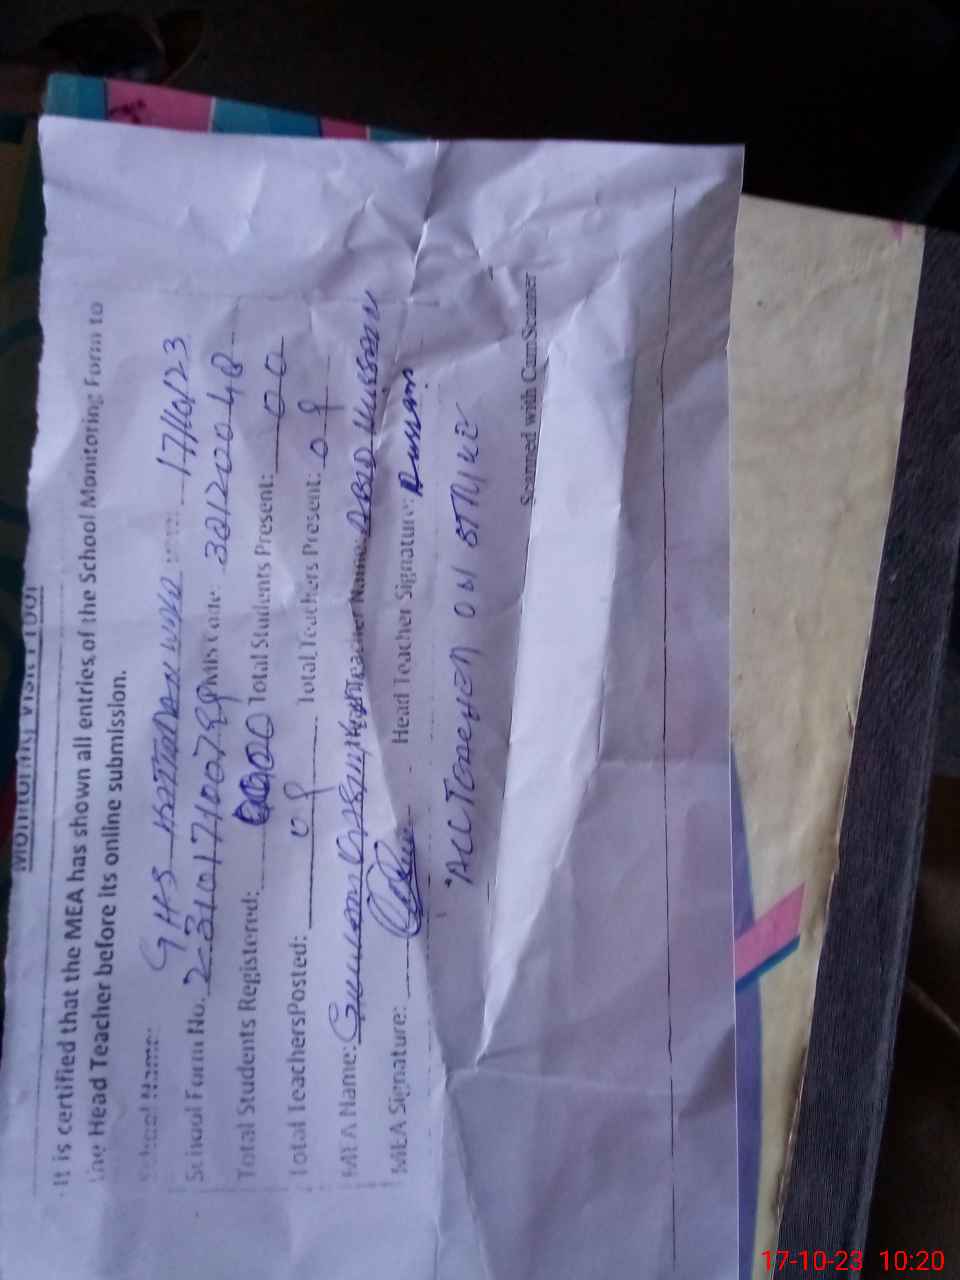 Monitoring Visit Tool
It is certified that the MEA has shown all entries of the School Monitoring Form to
the Head Teacher before its online submission.
School Name: GHS 17/10/23
School Form No. EMIS Code: 30120048
Total Students Registered: Total Students Present: 00
Total Teachers Posted: 09 Total Teachers Present: 09
MEA Name: Head Teacher Name: ABID HUSSAIN
MEA Signature: Head Teacher Signature:
ALL TEACHER ON STRIKE
Scanned with CamScanner
17-10-23 10:20